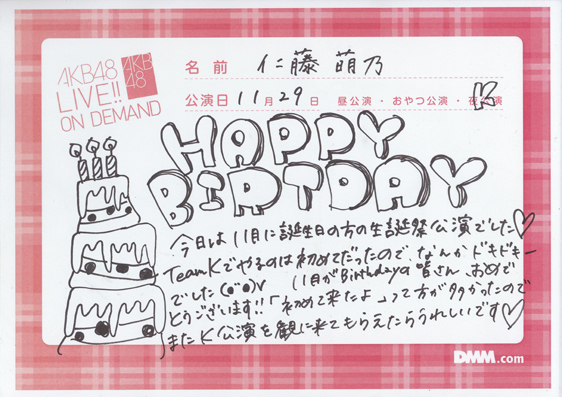 AKB48
LIVE!!
ON DEMAND
AKB
48
名前 仁藤萌乃
公演日 11月29日 昼公演・おやつ公演・夜公演
K
HAPPY
BIRTDAY
今日は11月に誕生日の方の生誕祭公演でした♡
TeamKでやるのは初めてだったので、なんかドキドキー
でした(●˙●)v 11月がBirthdayの皆さん おめで
とうございます!!「初めて来たよ」って方が多かったので
またK公演を観に来てもらえたらうれしいです♡
DMM.com